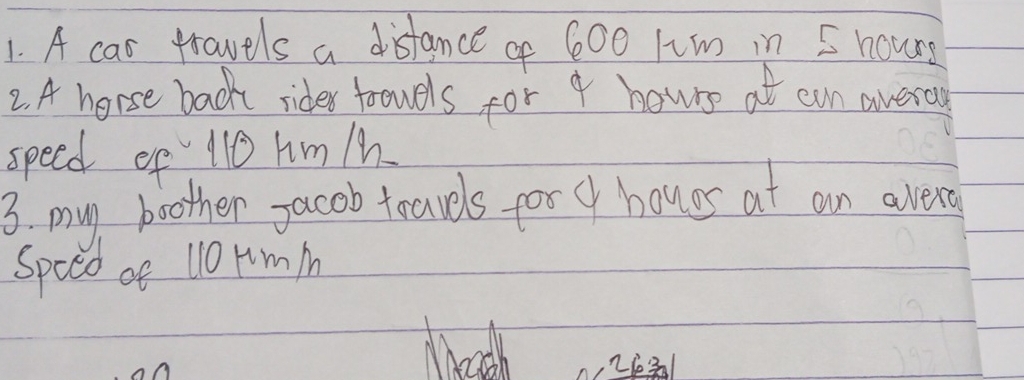 1. A car travels a distance of 600 Km in 5 hours
2. A horse back rider travels for 4 hours at an average
speed of 110 Km/h
3. my brother Jacob travels for 4 hours at an avera
Speed of 110 Km/h